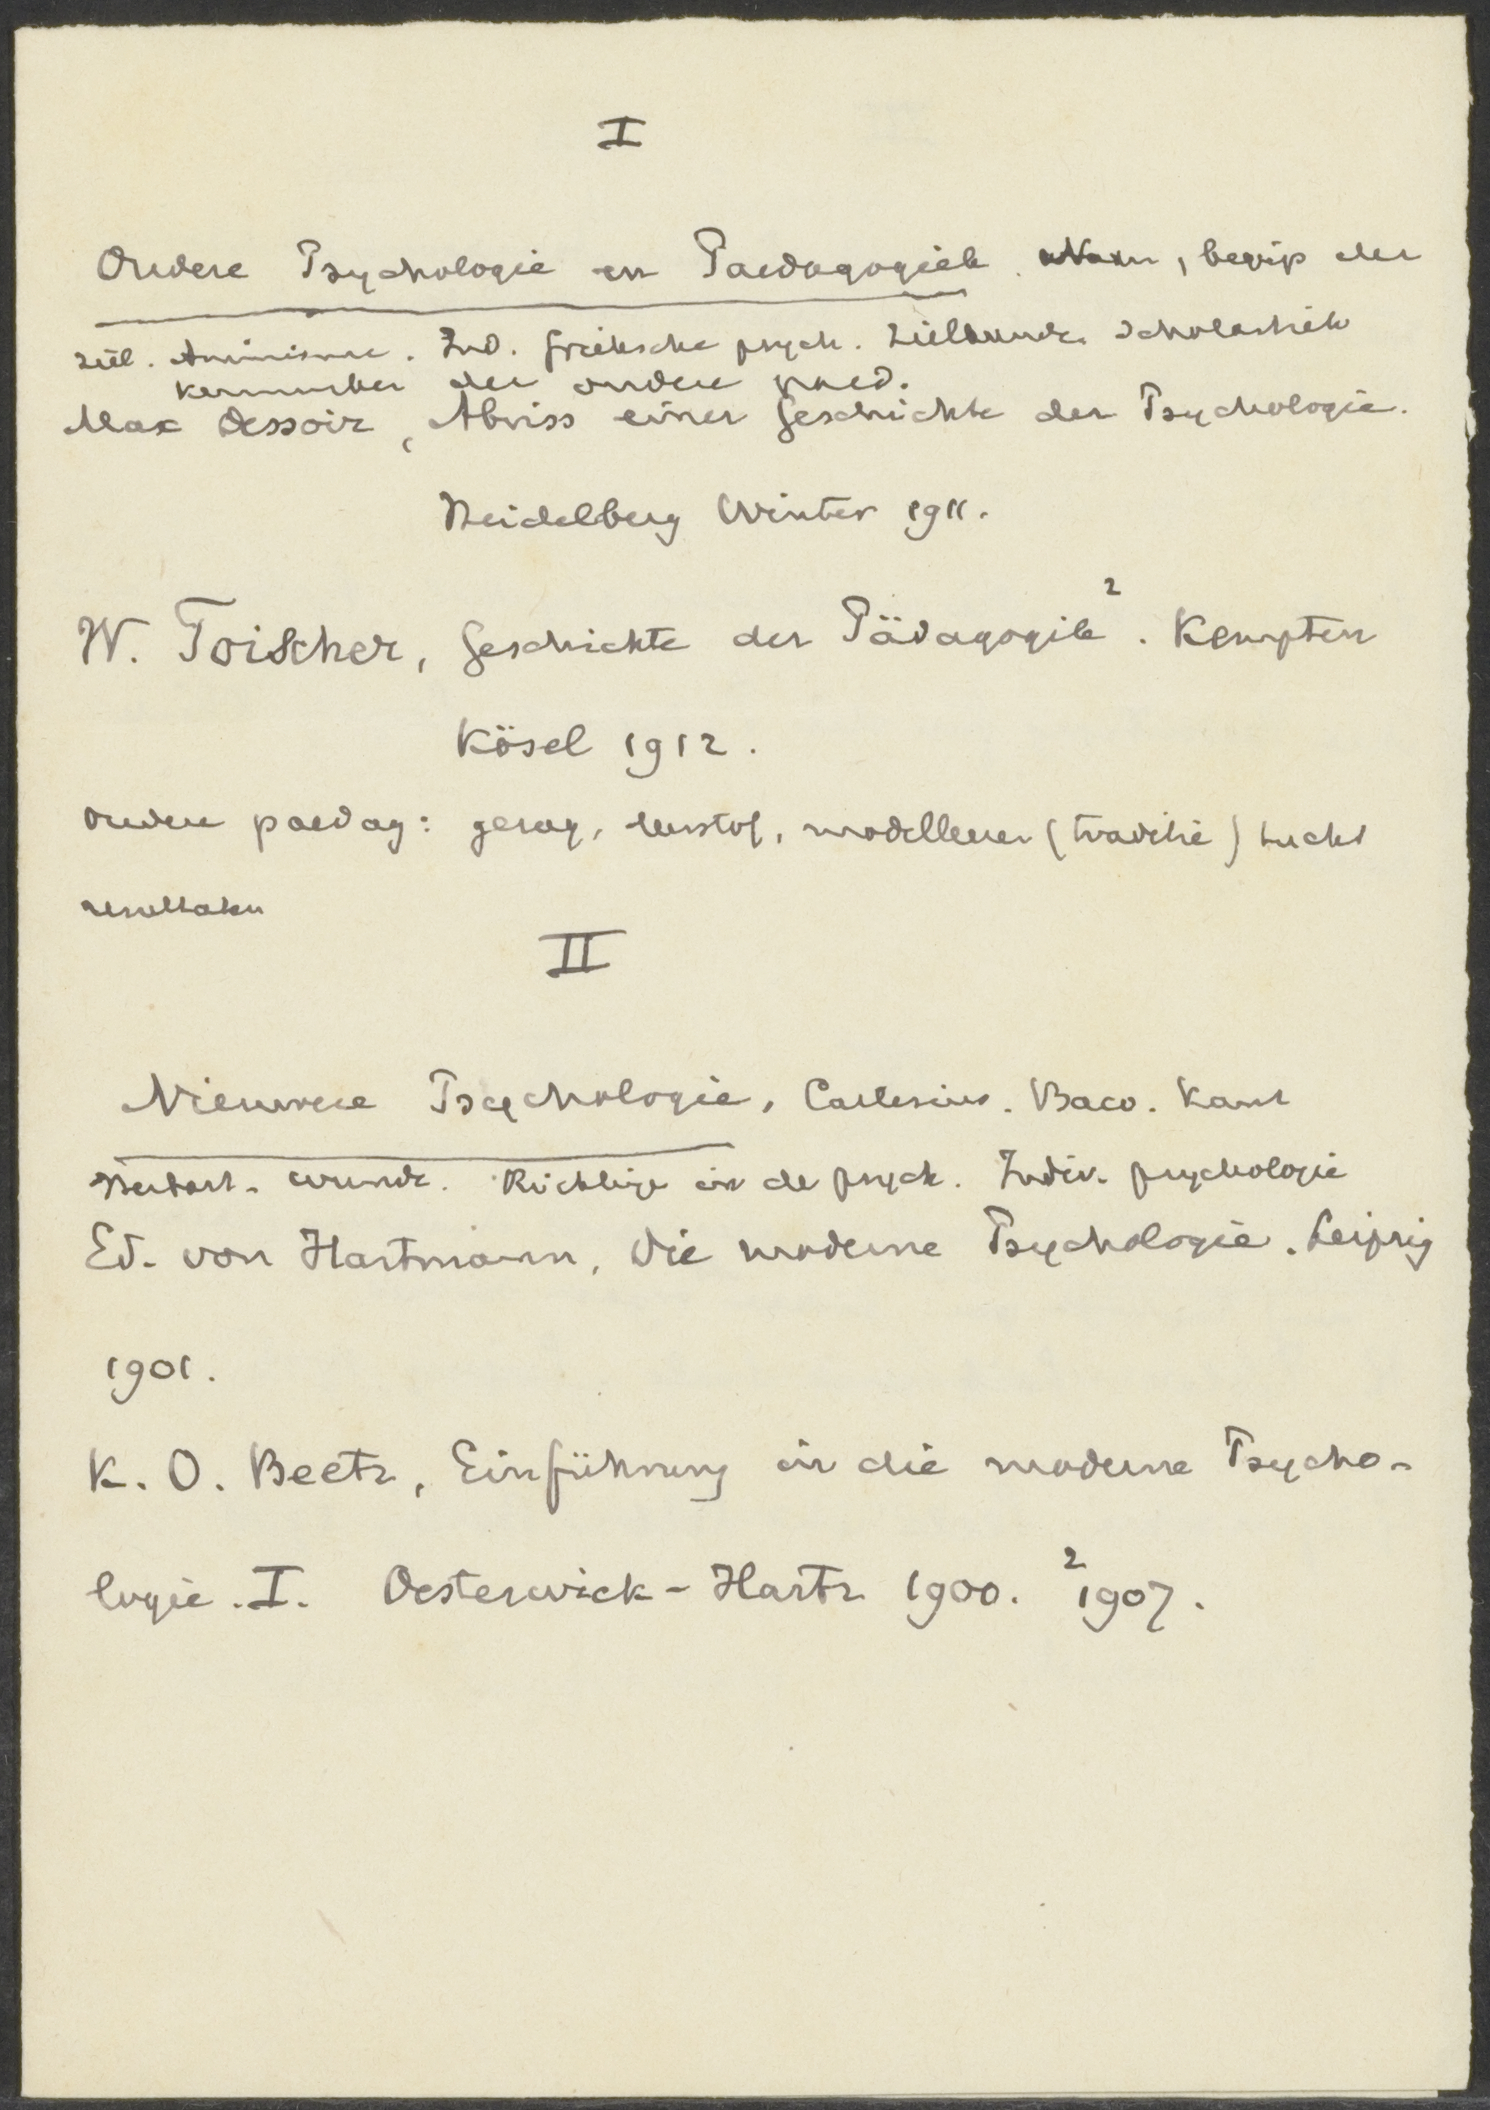 I
Oudere Psychologie en Paedagogiek. Naam, begrip der
ziel. Animisme. Ind. Grieksche psych. Zielkunde Scholastiek
Kenmerken der oudere paed.
Max Dessoir, Abriss einer Geschichte der Psychologie.
Heidelberg Winter 1911.
W. Toischer, Geschichte der Pädagogik². Kempten
Kösel 1912.
Oudere paedag: gezag, leerstof, modelleren (traditie) tucht
resultaten
II
Nieuwere Psychologie, Cartesius. Baco. Kant
Herbart. Wundt. Richtingen in de psych. Indiv. psychologie
Ed. von Hartmann, Die moderne Psychologie. Leipzig
1901.
K. O. Beetz, Einführung in die moderne Psycho-
logie. I. Oesterwick-Hartz 1900. ²1907.